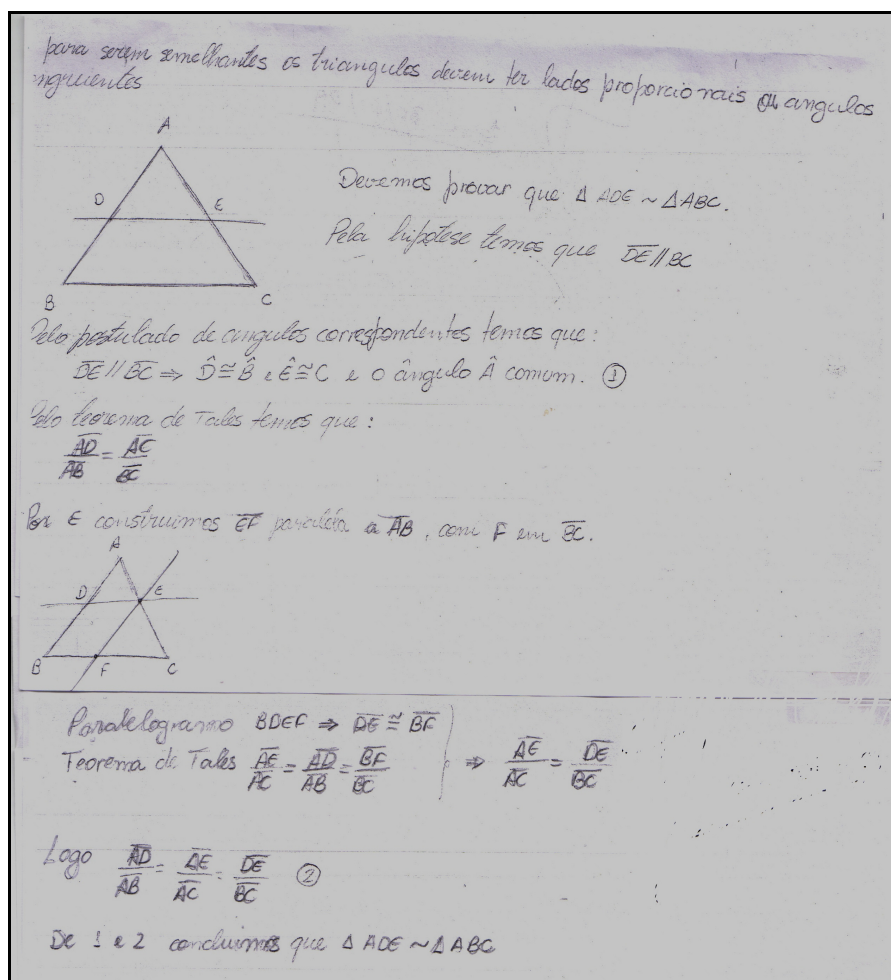 para serem semelhantes os triangulos devem ter lados proporcionais ou angulos
ngruentes
A
D E
B C
Devemos provar que Δ ADE ~ ΔABC.
Pela hipótese temos que D̅E̅//B̅C̅
Pelo postulado de angulos correspondentes temos que:
D̅E̅ // B̅C̅ ⇒ D̂ ≅ B̂ e Ê ≅ C e o ângulo Â comum. ①
Pelo teorema de Tales temos que:
A̅D̅/A̅B̅ = A̅C̅/B̅C̅
Por E construimos E̅F̅ paralela a A̅B̅, com F em B̅C̅.
A
D E
B F C
Paralelogramo BDEF ⇒ D̅E̅ ≅ B̅F̅
Teorema de Tales A̅E̅/A̅C̅ = A̅D̅/A̅B̅ = B̅F̅/B̅C̅ ⇒ A̅E̅/A̅C̅ = D̅E̅/B̅C̅
Logo A̅D̅/A̅B̅ = A̅E̅/A̅C̅ = D̅E̅/B̅C̅ ②
De 1 e 2 concluimos que Δ ADE ~ Δ ABC